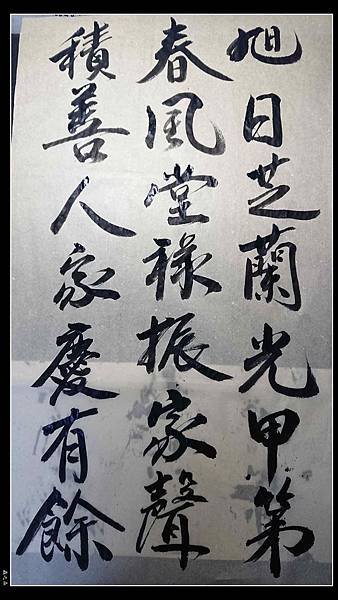 旭日芝蘭光甲第
春風堂祿振家聲
積善人家慶有餘